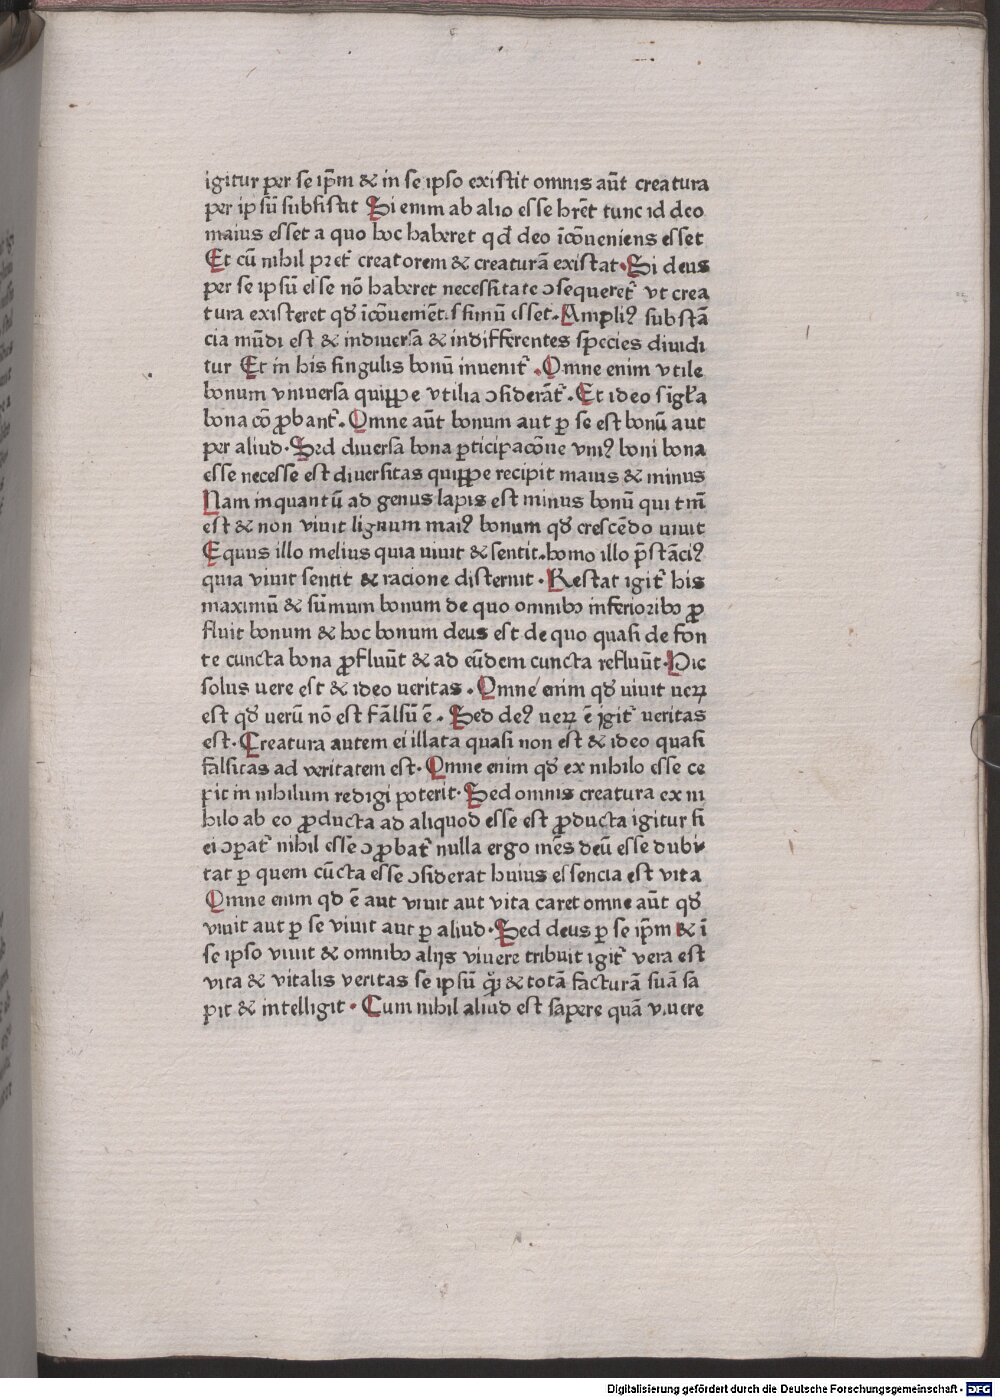 igitur per se ip̄m & in se ipso existit omnis aūt creatura
per ipsū subsistit Si enim ab alio esse hr̄et tunc id deo
maius esset a quo hoc haberet qd̄ deo īcōueniens esset
Et cū nihil pret̉ creatorem & creaturā existat·Si deus
per se ipsū esse nō haberet necessitate ɔsequeret̉ vt crea
tura existeret qđ īcōueniētissimū esset·Ampliꝰ substā
cia mūdi est & indiuersa & indifferentes species diuidi
tur Et in his singulis bonū inuenit̉ ·Omne enim vtile
bonum vniuersa quiꝓpe vtilia ɔsiderāt̉ ·Et ideo sigl̄a
bona cō ꝓbant̉ ·Omne aūt bonum aut ꝑ se est bonū aut
per aliud·Sed diuersa bona ꝑticipacōne vniꝰ boni bona
esse necesse est diuersitas quiꝓpe recipit maius & minus
Nam inquantū ad genus lapis est minus bonū qui tm̄
est & non viuit lignum maiꝰ bonum qđ crescēdo uiuit
Equus illo melius quia uiuit & sentit·homo illo p̄stāciꝰ
quia viuit sentit & racione disternit ·Restat igit̉ his
maximū & sūmum bonum de quo omnibꝫ inferioribꝫ ꝓ
fluit bonum & hoc bonum deus est de quo quasi de fon
te cuncta bona ꝓfluūt & ad eūdem cuncta refluūt·Hic
solus uere est & ideo ueritas ·Omne enim qđ uiuit ueꝝ
est qđ uerū nō est fālsū ē ·Sed deꝰ ueꝝ ē igit̉ ueritas
est·Creatura autem ei illata quasi non est & ideo quasi
falsitas ad veritatem est·Omne enim qđ ex nihilo esse ce
pit in nihilum redigi poterit·Sed omnis creatura ex ni
hilo ab eo ꝓducta ad aliquod esse est ꝓducta igitur si
ei ɔꝑat̉ nihil esse ɔꝓbat̉ nulla ergo mēs deū esse dubi
tat ꝑ quem cūcta esse ɔsiderat huius essencia est vita
Omne enim qd ē aut viuit aut vita caret omne aūt qđ
viuit aut ꝑ se viuit aut ꝑ aliud·Sed deus ꝑ se ip̄m & ī
se ipso viuit & omnibꝫ alijs viuere tribuit igit̉ vera est
vita & vitalis veritas se ipsū qꝫ & totā facturā suā sa
pit & intelligit ·Cum nihil aliud est sapere quā viuere
Digitalisierung gefördert durch die Deutsche Forschungsgemeinschaft - DFG